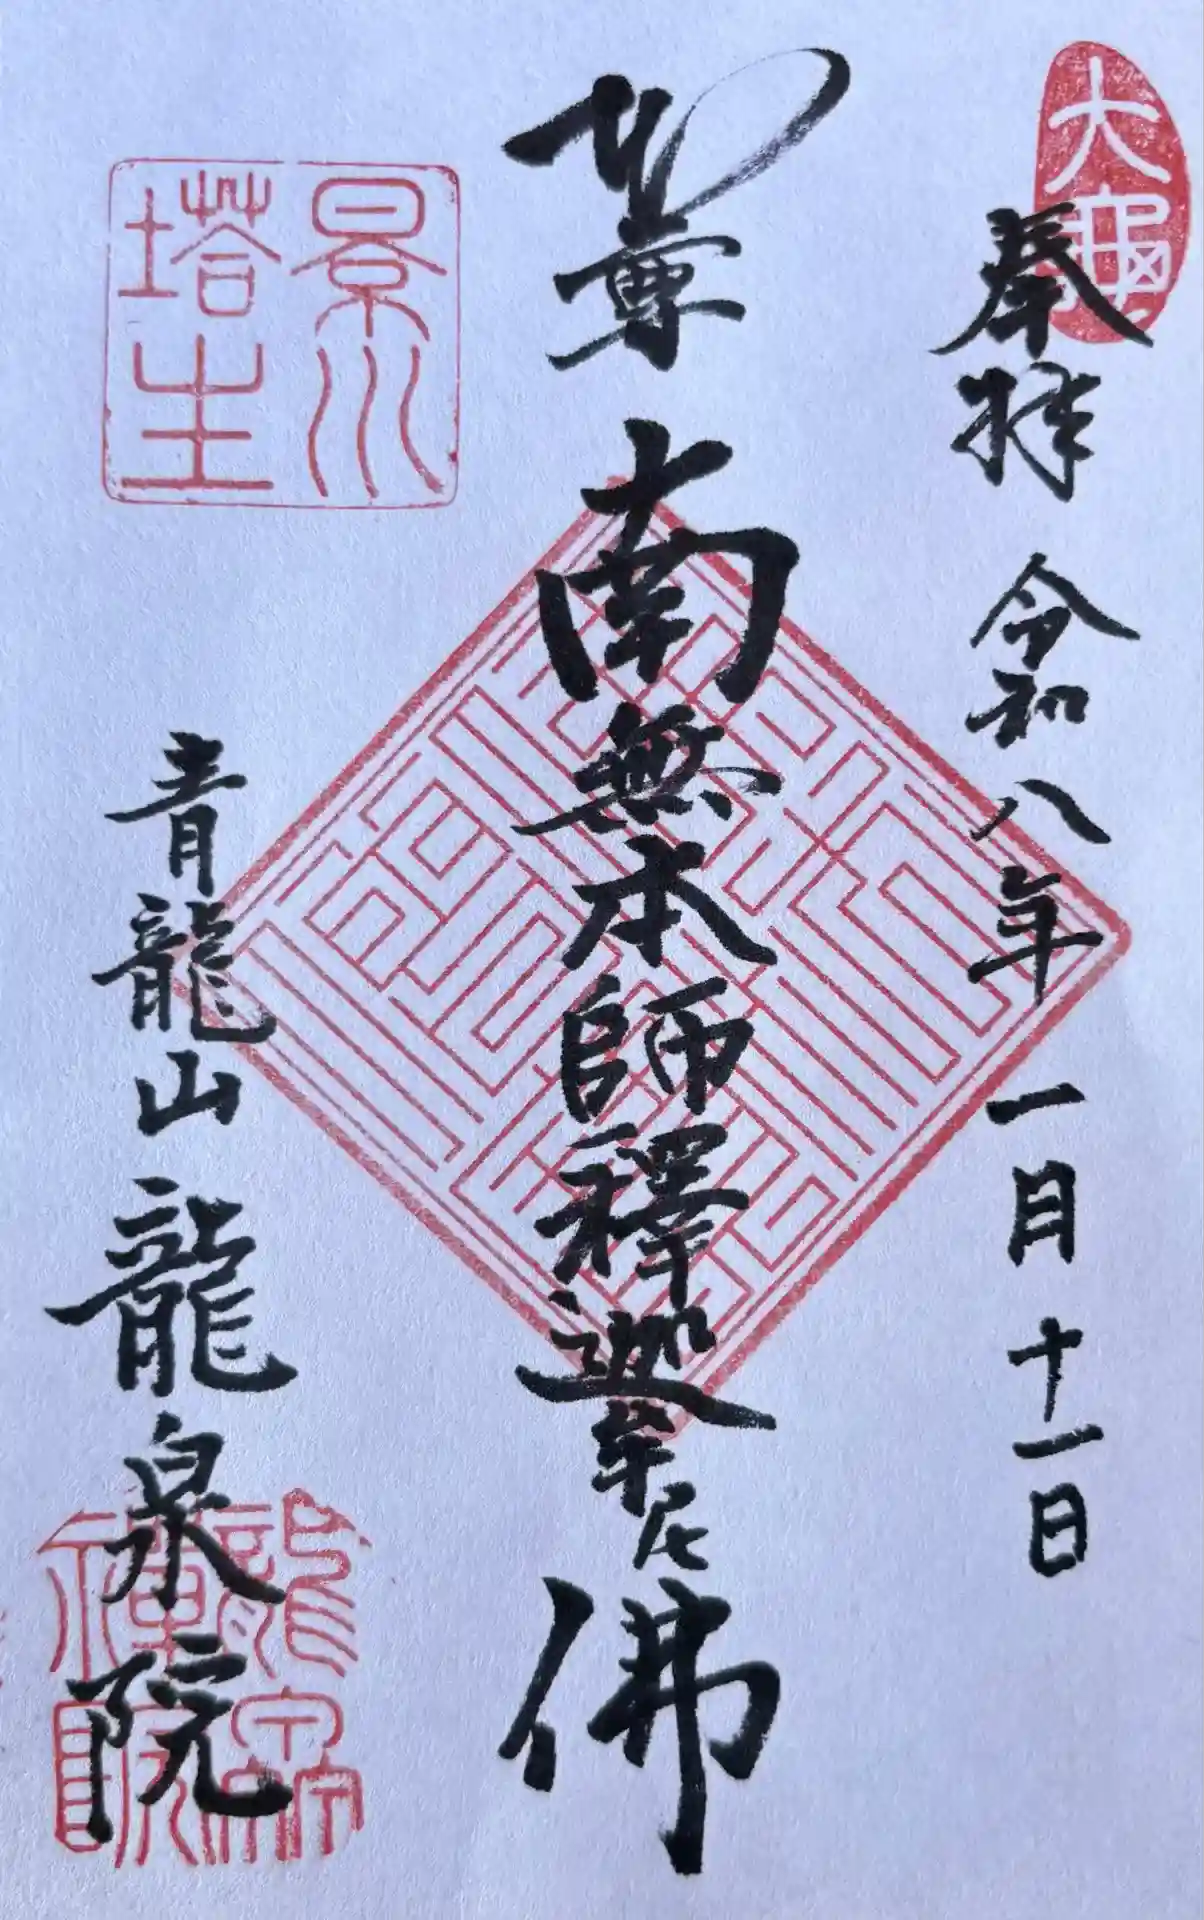 大龜
奉拝 令和八年 一月 十一日
世尊 南無本師釋迦牟尼佛
景川
塔主
青龍山 龍泉院